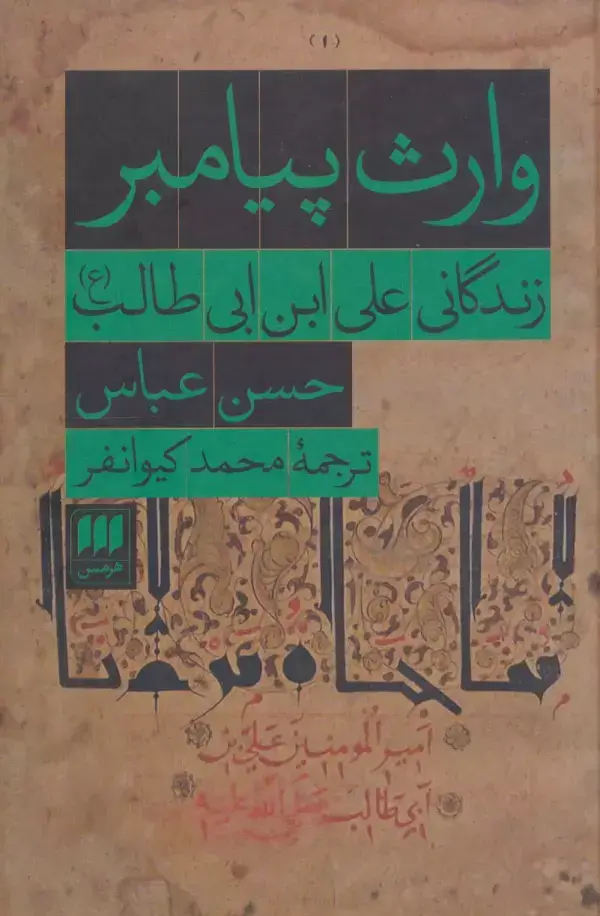 (۱)
وارث پیامبر
زندگانی علی ابن ابی طالب (ع)
حسن عباس
ترجمهٔ محمد کیوانفر
هرمس
امير المومنين علي بن
أبي طالب صلى الله عليه